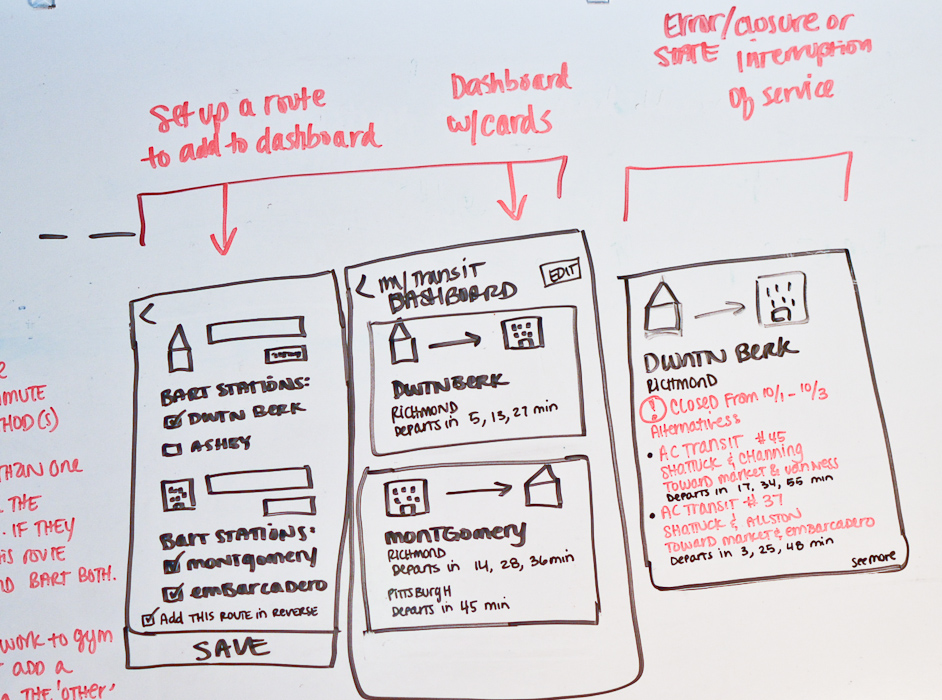 Set up a route
to add to dashboard
Dashboard
w/cards
Error/closure or
STATE interruption
of service
MUTE
HOD(S)
THAN ONE
THE
IF THEY
ROUTE
BART BOTH.
WORK to gym
ADD A
THE 'OTHER'
<
BART STATIONS:
DWTN BERK
ASHBY
BART STATIONS:
montgomery
embarcadero
Add THIS ROUTE in REVERSE
SAVE
< my transit
DASHBOARD
EDIT
DWTN BERK
RICHMOND
Departs in 5, 13, 27 min
montgomery
RICHMOND
Departs in 14, 28, 36 min
PITTSBURGH
Departs in 45 min
DWTN BERK
RICHMOND
! CLOSED From 10/1 - 10/3
Alternatives
• AC TRANSIT #45
SHATTUCK & CHANNING
Toward market & van ness
Departs in 17, 34, 55 min
• AC TRANSIT #37
SHATTUCK & ALLSTON
Toward market & embarcadero
Departs in 3, 25, 48 min
see more